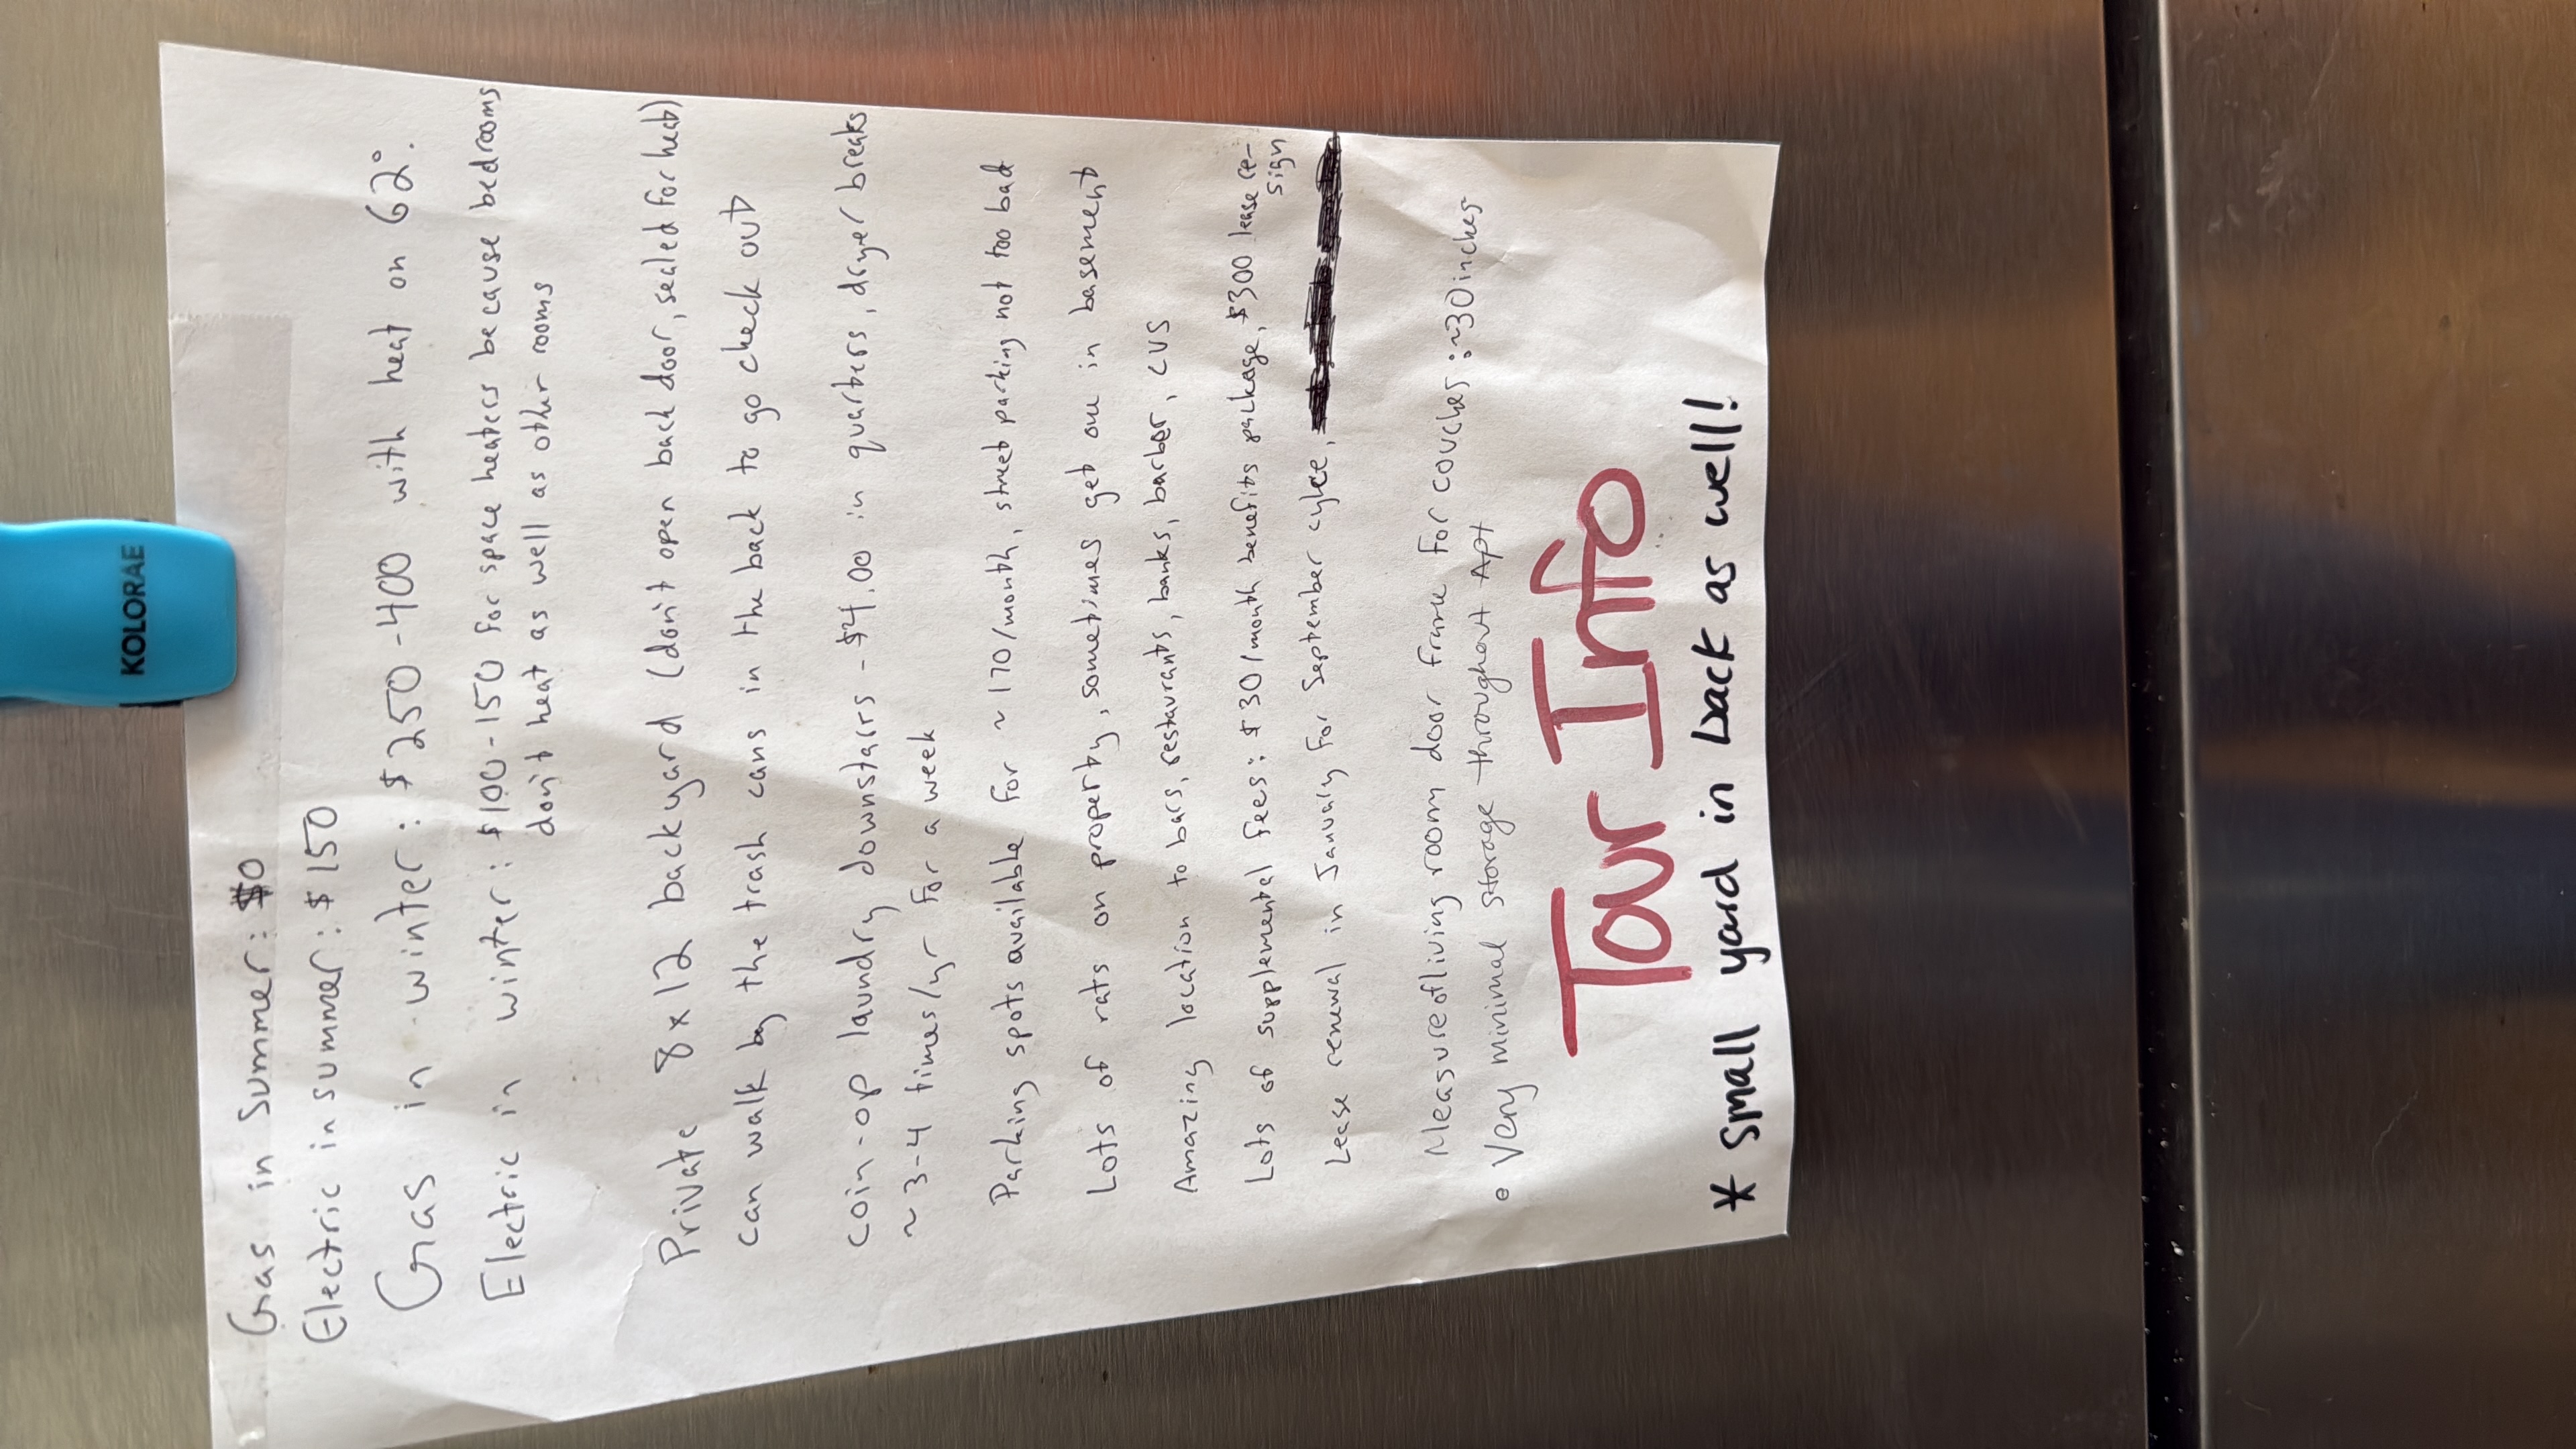 KOLORAE
Gas in Summer: $0
Electric in summer: $150
Gas in winter: $250-400 with heat on 62°.
Electric in winter: $100-150 for space heaters because bedrooms
don't heat as well as other rooms
Private 8x12 backyard (don't open back door, sealed for heat)
can walk by the trash cans in the back to go check out
Coin-op laundry downstairs - $4.00 in quarters, dryer breaks
~3-4 times/yr for a week
Parking spots available for ~170/month, street parking not too bad
Lots of rats on property, sometimes get one in basement
Amazing location to bars, restaurants, banks, barber, CVS
Lots of supplemental fees: $30/month benefits package, $300 lease re-
sign
Lease renewal in January for September cylce,
Measure of living room door frame for couches: ~30inches
• Very minimal storage throughout Apt
Tour Info
* Small yard in back as well!